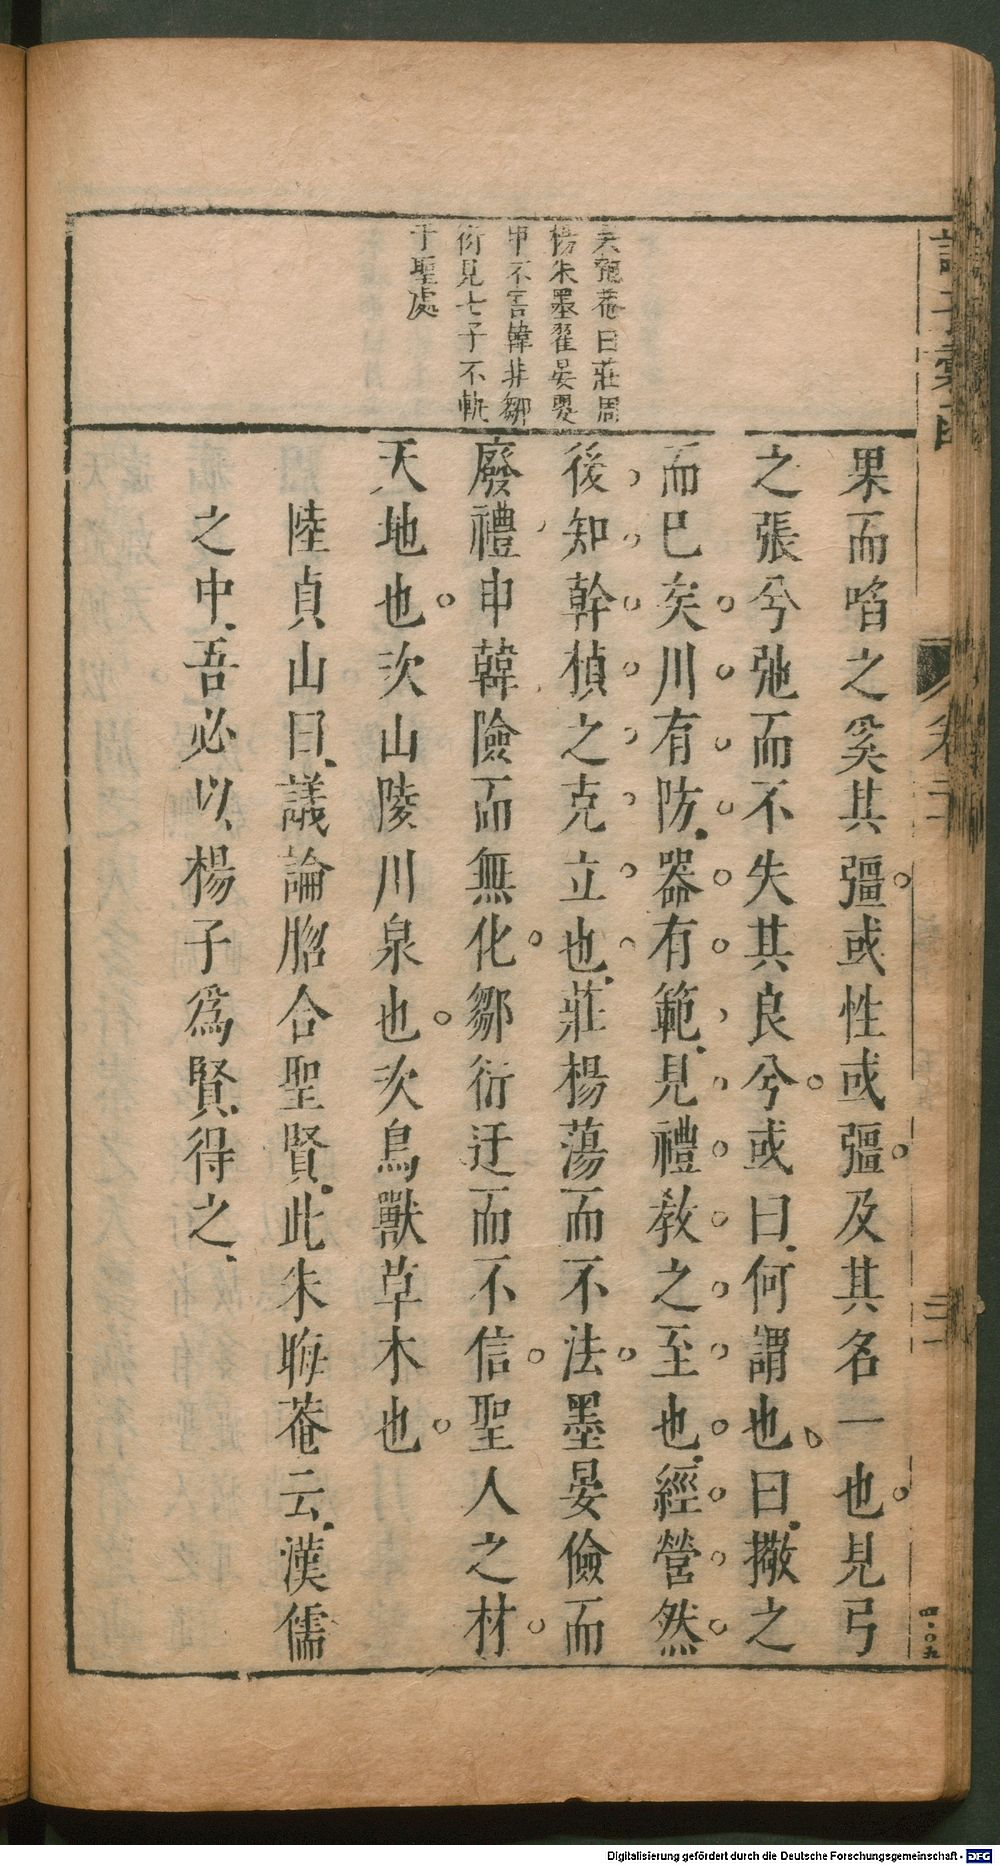 果而啗之奚其彊或性或彊及其名一也見弓
之張兮弛而不失其良兮或曰何謂也曰撒之
而已矣川有防器有範見禮教之至也經營然
後知幹楨之克立也莊楊蕩而不法墨晏儉而
廢禮申韓險而無化鄒衍迂而不信聖人之材
天地也次山陵川泉也次鳥獸草木也
陸貞山曰議論脗合聖賢此朱晦菴云漢儒
之中吾必以楊子為賢得之
匏菴曰莊周
楊朱墨翟晏嬰
申不害韓非鄒
衍見七子不軌
于聖處
諸子彙函
卷二十
三十一
四〇九
Digitalisierung gefördert durch die Deutsche Forschungsgemeinschaft - DFG